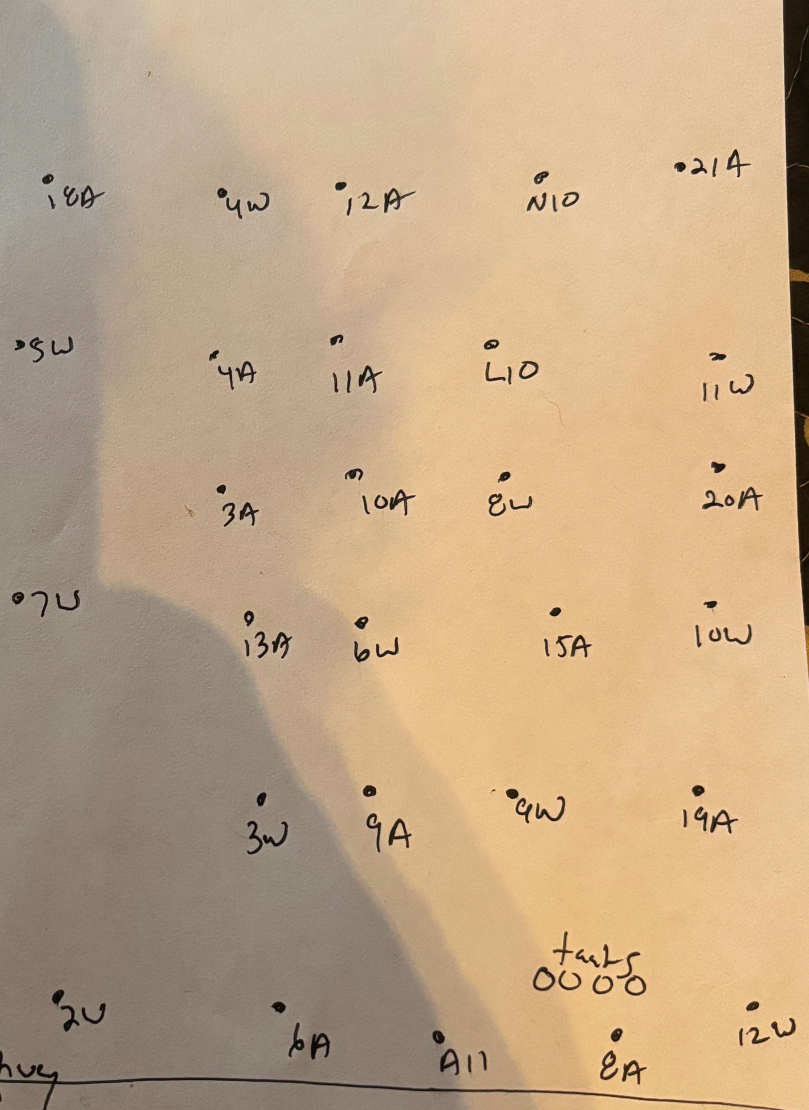 18A 4W 12A N10 21A
5W 4A 11A L10 11W
3A 10A 8W 20A
7W 13A 6W 15A 10W
3W 9A 9W 19A
tanks
2W 6A A11 8A 12W